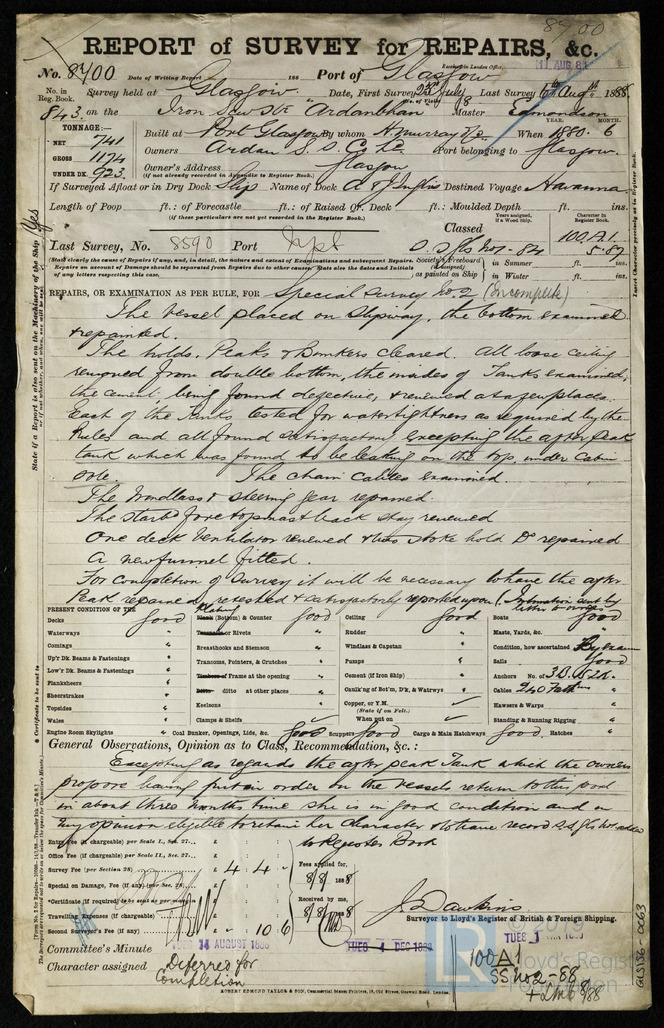 8700
REPORT of SURVEY for REPAIRS, &c.
Received in London Office,
11 AUG 88
No. 8700 Date of Writing Report 188 Port of Glasgow
No. in Reg. Book. Survey held at Glasgow. Date, First Survey 23rd July Last Survey 6th Augst 1888
No. of Visits 8
843. on the Iron Scw Str "Ardanbhan" Master Edmondson
TONNAGE:— YEAR. MONTH.
NET 741 Built at Port Glasgow By whom Murray & Co. When 1880. 6
GROSS 1174 Owners Ardan S. S. Co Ld Port belonging to Glasgow.
UNDER DK. 923. Owner's Address Glasgow
(if not already recorded in Appendix to Register Book.)
If Surveyed Afloat or in Dry Dock Slip Name of Dock A & J Inglis Destined Voyage Havanna.
Length of Poop ft.: of Forecastle ft.: of Raised Qr. Deck ft.: Moulded Depth ft. ins.
(if these particulars are not yet recorded in the Register Book.)
Classed
Years assigned, if a Wood Ship.
Character in Register Book.
100 A.1.
5.87
Last Survey, No. 8590 Port Lpl S.S. Gls No1-84
(State clearly the cause of Repairs if any, and, in detail, the nature and extent of Examinations and subsequent Repairs. Repairs on account of Damage should be separated from Repairs due to other causes. State also the dates and Initials of any letters respecting this case.
Society's Freeboard (if assigned) as painted on Ship in Summer ft. ins.
in Winter ft. ins.
REPAIRS, OR EXAMINATION AS PER RULE, FOR Special Survey No. 2 (Incomplete)
The Vessel placed on slipway, the bottom examined
& repainted.
The holds, Peaks & Bunkers cleared. All loose ceiling
removed from double bottom, the insides of Tanks examined,
the cement, being found defective, & renewed at a few places.
Each of the Tanks tested for watertightness as required by the
Rules and all found satisfactory excepting the after peak
tank which was found to be leaking on the top, under cabin
sole. The chain cables examined.
The Windlass & steering gear repaired.
The starbd fore topmast back stay renewed
One deck Ventilator renewed & two stoke hold Do repaired
A new funnel fitted.
For completion of survey it will be necessary to have the after
Peak repaired, retested & satisfactorily reported upon (Intimation sent by letter to owners)
PRESENT CONDITION OF THE
Decks good
Waterways "
Comings "
Up'r Dk. Beams & Fastenings "
Low'r Dk. Beams & Fastenings "
Planksheers "
Sheerstrakes "
Topsides "
Wales "
Engine Room Skylights "
Plating
Plank (Bottom) & Counter good
Treenails or Rivets "
Breasthooks and Stemson "
Transoms, Pointers, & Crutches "
Timbers or Frame at the opening "
Ditto ditto at other places "
Keelsons "
Clamps & Shelfs ✓
Coal Bunker, Openings, Lids, &c. good
Ceiling good
Rudder "
Windlass & Capstan "
Pumps "
Cement (if Iron Ship) "
Caulk'ng of Bot'm, D'k, & Watrwys "
Copper, or Y.M. ✓
(State if on Felt.)
When put on ✓
Scuppers good Cargo & Main Hatchways good. Hatches "
Boats good
Masts, Yards, &c. "
Condition, how ascertained By exam
Sails good
Anchors No. of 3B. 1S. 2K.
Cables 240 Fathms
Hawsers & Warps "
Standing & Running Rigging "
General Observations, Opinion as to Class, Recommendation, &c. :
Excepting as regards the after peak Tank which the owners
propose having put in order on the vessels return to this port
in about three months time she is in good condition and in
my opinion eligible to retain her character & to have record S.S. Gls No2 added
to Register Book
Entry Fee (if chargeable) per Scale I., Sec. 27... £
Office Fee (if chargeable) per Scale II., Sec. 27... £
Survey Fee (per Section 28) £ 4 . 4 . -
Special or Damage Fee (if any) (per Sec. 28) £
*Certificate (if required) to be sent as per margin
Travelling Expenses (if chargeable) £
Second Surveyor's Fee (if any) £ - 10 6
Fees applied for,
8/8/1888
Received by me,
8/8/1888
J. Dawkins
Surveyor to Lloyd's Register of British & Foreign Shipping.
Committee's Minute TUES 14 AUGUST 1888
TUES 4 DEC 1888
TUES 1
Character assigned Deferred for
Completion
100A1
SS No 2-88
+ LMC 8/88
ROBERT EDMUND TAYLOR & SON, Commercial Steam Printers, 19, Old Street, Goswell Road, London.
State if a Report is also sent on the Machinery of the Ship Yes
Insert Character precisely as in Register Book.
* Certificate to be sent to
GLS136-0063
© 2019
LR
Lloyd's Register
Foundation